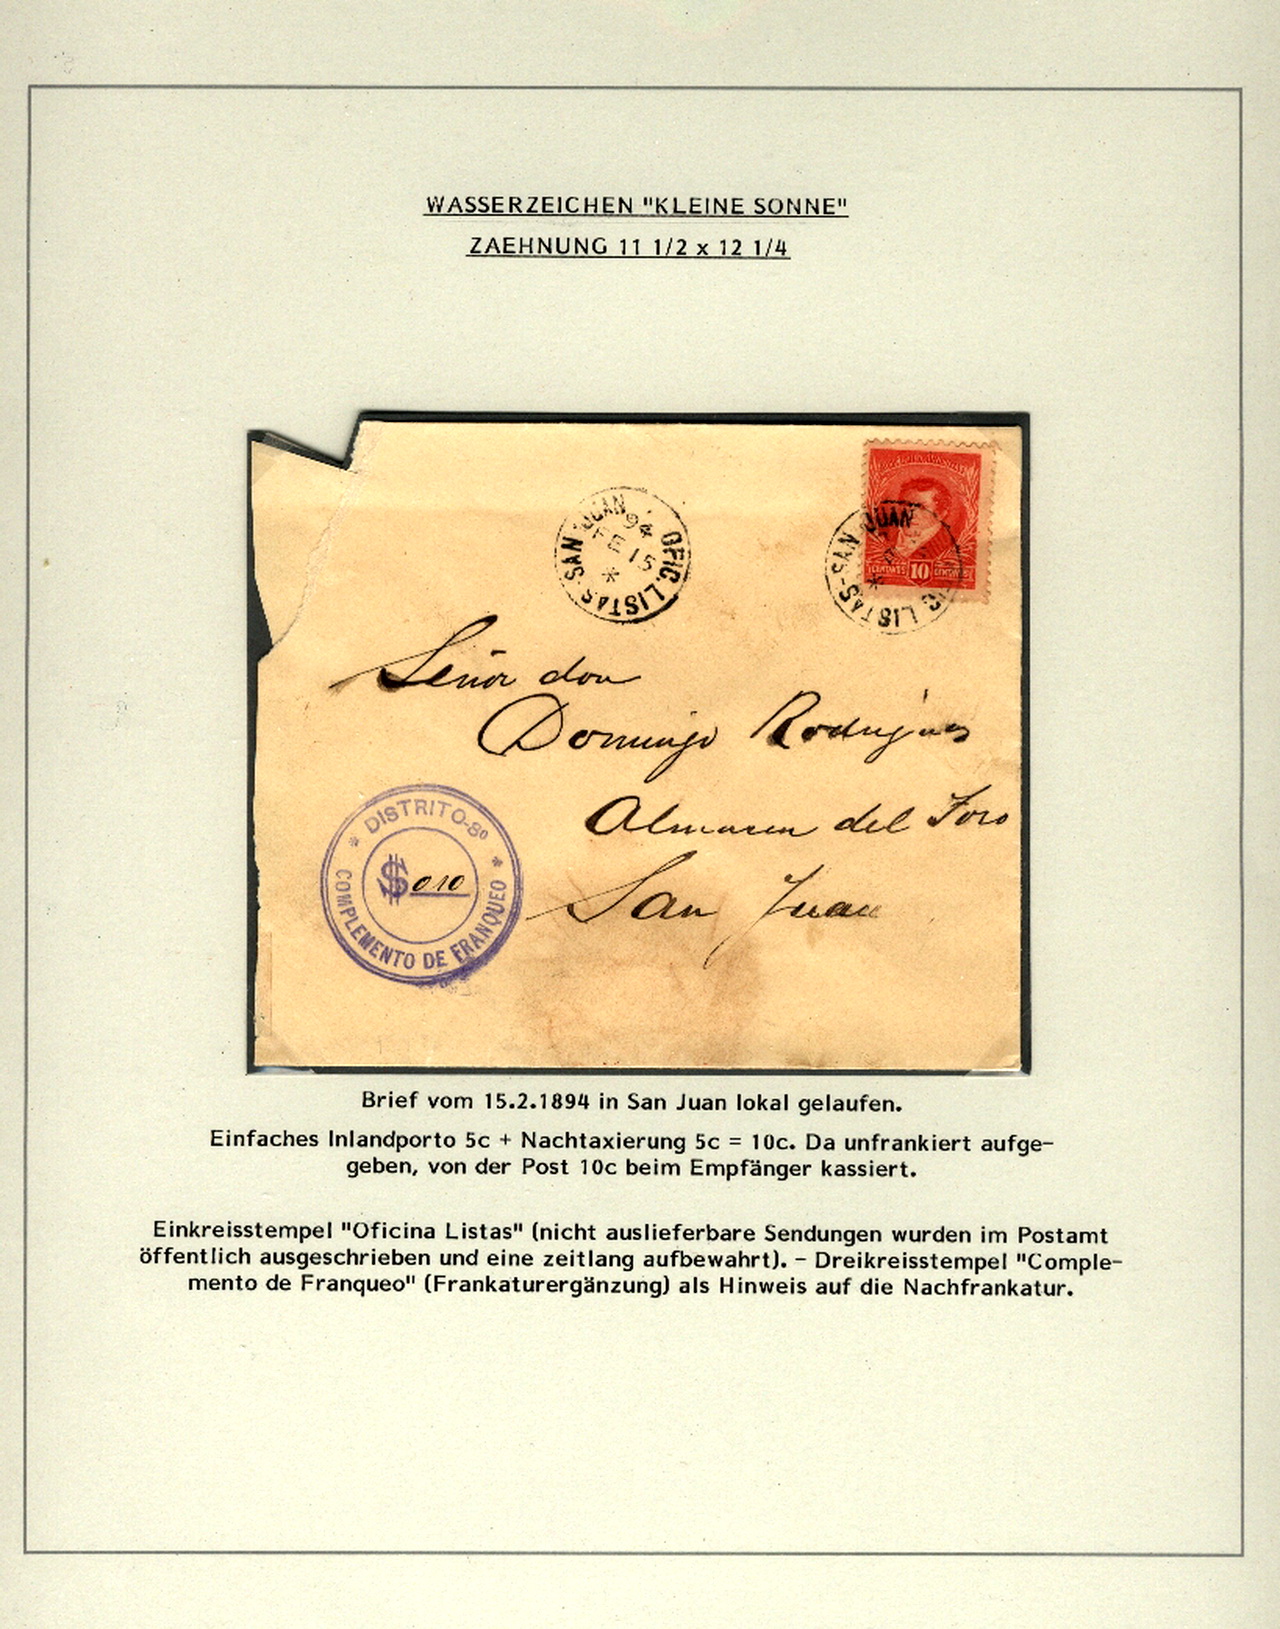 WASSERZEICHEN "KLEINE SONNE"
ZAEHNUNG 11 1/2 x 12 1/4
OFIC. LISTAS-SAN JUAN
94
FE 15
*
LISTAS-SAN JUAN
CENTAVOS 10 CENTAVOS
Señor don
Domingo Rodrigues
Almacen del Toro
San Juan
* DISTRITO-8º *
$ 010
COMPLEMENTO DE FRANQUEO
Brief vom 15.2.1894 in San Juan lokal gelaufen.
Einfaches Inlandporto 5c + Nachtaxierung 5c = 10c. Da unfrankiert aufge-
geben, von der Post 10c beim Empfänger kassiert.
Einkreisstempel "Oficina Listas" (nicht auslieferbare Sendungen wurden im Postamt
öffentlich ausgeschrieben und eine zeitlang aufbewahrt). - Dreikreisstempel "Comple-
mento de Franqueo" (Frankaturergänzung) als Hinweis auf die Nachfrankatur.